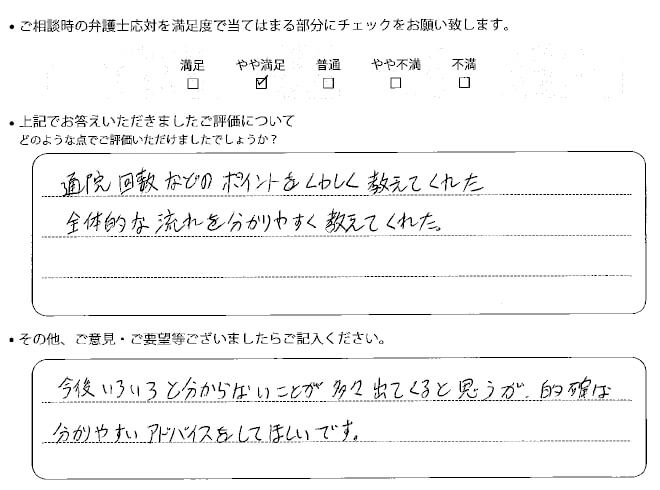 • ご相談時の弁護士応対を満足度で当てはまる部分にチェックをお願い致します。
満足 やや満足 普通 やや不満 不満
☐ ☑ ☐ ☐ ☐
• 上記でお答えいただきましたご評価について
どのような点でご評価いただけましたでしょうか？
通院回数などのポイントをくわしく教えてくれた
全体的な流れを分かりやすく教えてくれた。
• その他、ご意見・ご要望等ございましたらご記入ください。
今後いろいろと分からないことが多々出てくると思うが、的確な
分かりやすいアドバイスをしてほしいです。